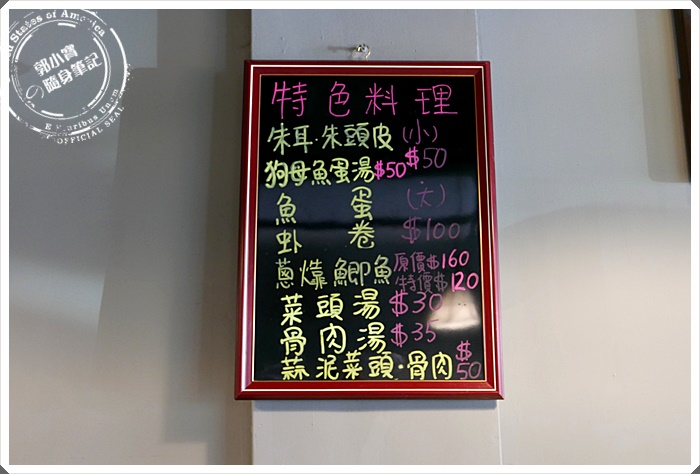 郭小寶
の隨身筆記
d States of America
E Pluribus Unum
OFFICIAL SEAL
特色料理
朱耳·朱頭皮 (小) $50
狗母魚蛋湯$50
魚蛋 (大)
虾卷 $100
蔥㸆鯽魚 原價$160
特價$120
菜頭湯 $30
骨肉湯 $35
蒜泥菜頭·骨肉 $50